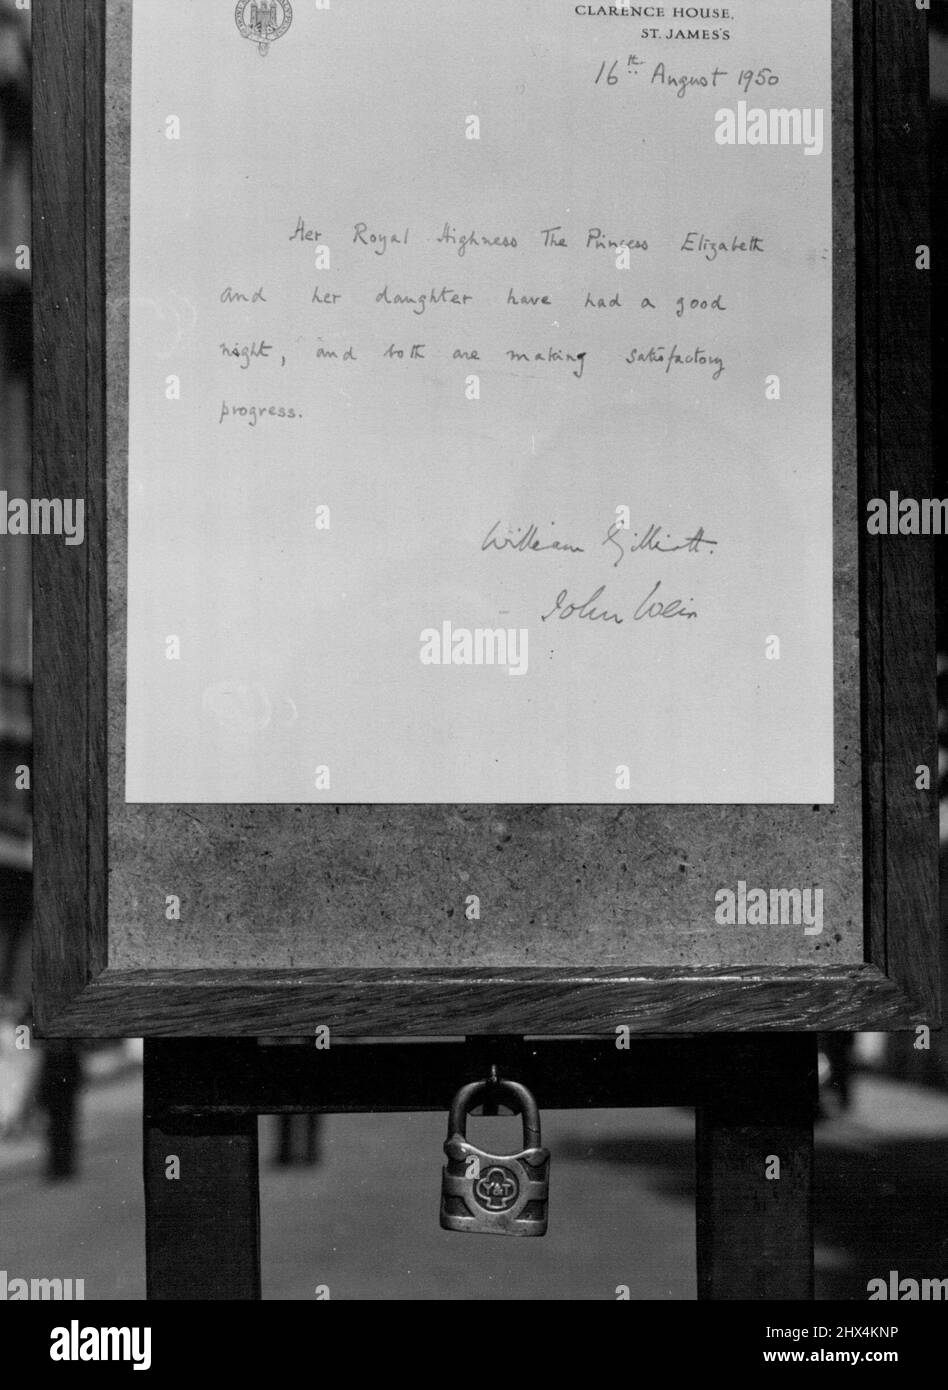 CLARENCE HOUSE,
ST. JAMES'S
16th August 1950
Her Royal Highness The Princess Elizabeth
and her daughter have had a good
night, and both are making satisfactory
progress.
William Gilliatt.
John Weir
Y&T
alamy
alamy
Image ID: 2HX4KNP
www.alamy.com